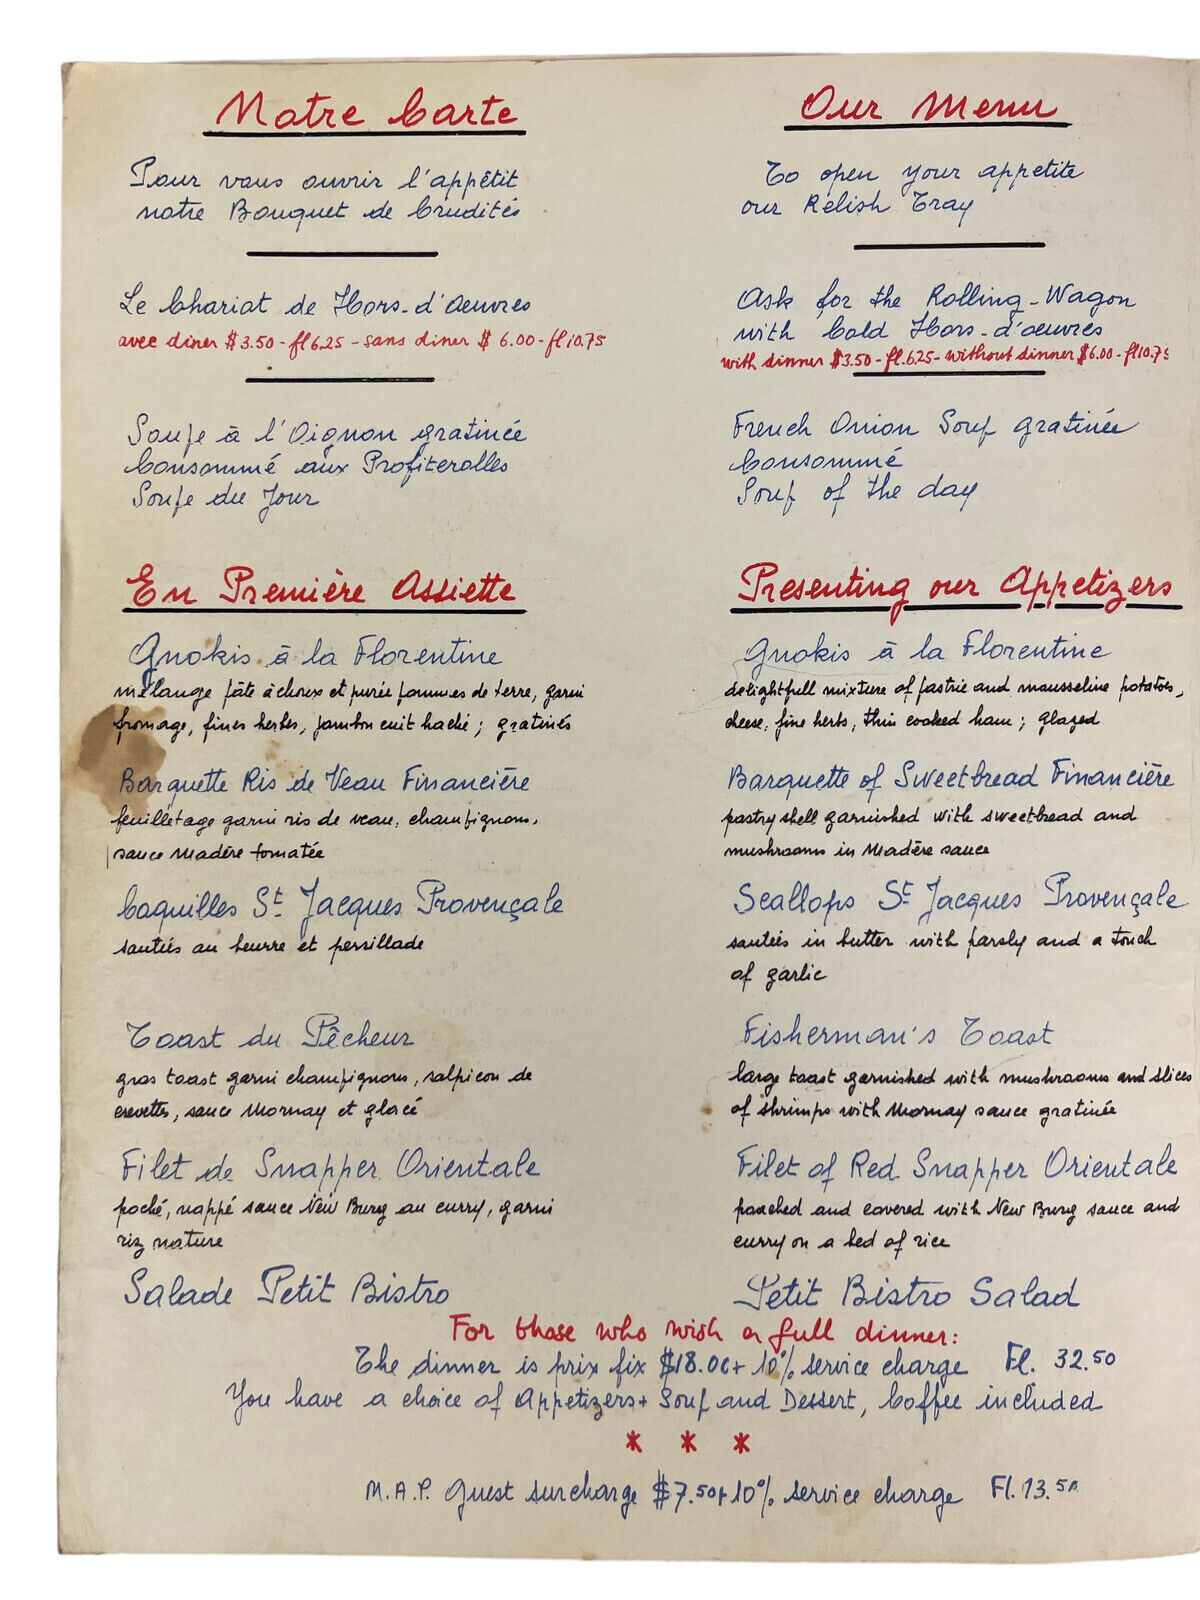 Notre Carte
Pour vous ouvrir l'appêtit
notre Bouquet de Crudités
Le Chariat de Hors-d'oeuvres
avec diner $3.50 - fl 6.25 - sans diner $ 6.00 - fl 10.75
Soupe à l'Oignon gratinée
Consommé aux Profiterolles
Soupe du Jour
En Première Assiette
Gnokis à la Florentine
mélange pâte à choux et purée pommes de terre, garni
fromage, fines herbes, jambon cuit haché ; gratinés
Barquette Ris de Veau Financière
feuilletage garni ris de veau, champignons,
sauce Madère tomatée
Coquilles St Jacques Provençale
sautées au beurre et persillade
Toast du Pêcheur
gros toast garni champignons, salpicon de
crevettes, sauce Mornay et glacé
Filet de Snapper Orientale
poché, nappé sauce New Burg au curry, garni
riz nature
Salade Petit Bistro
Our Menu
To open your appetite
our Relish Tray
Ask for the Rolling-Wagon
with Cold Hors-d'oeuvres
with dinner $3.50 - fl. 6.25 - without dinner $6.00 - fl 10.75
French Onion Soup gratinée
Consommé
Soup of the day
Presenting our Appetizers
Gnokis à la Florentine
delightfull mixture of pastrie and mousseline potatoes,
cheese, fine herbs, thin cooked ham ; glazed
Barquette of Sweetbread Financière
pastry shell garnished with sweetbread and
mushrooms in Madère sauce
Scallops St Jacques Provençale
sautées in butter with parsly and a touch
of garlic
Fisherman's Toast
large toast garnished with mushrooms and slices
of shrimps with Mornay sauce gratinée
Filet of Red Snapper Orientale
poached and covered with New Burg sauce and
curry on a bed of rice
Petit Bistro Salad
For those who wish a full dinner:
The dinner is prix fix $18.00 + 10% service charge Fl. 32.50
You have a choice of Appetizers + Soup and Dessert, Coffee included
* * *
M.A.P. Guest surcharge $7.50 + 10% service charge Fl. 13.50